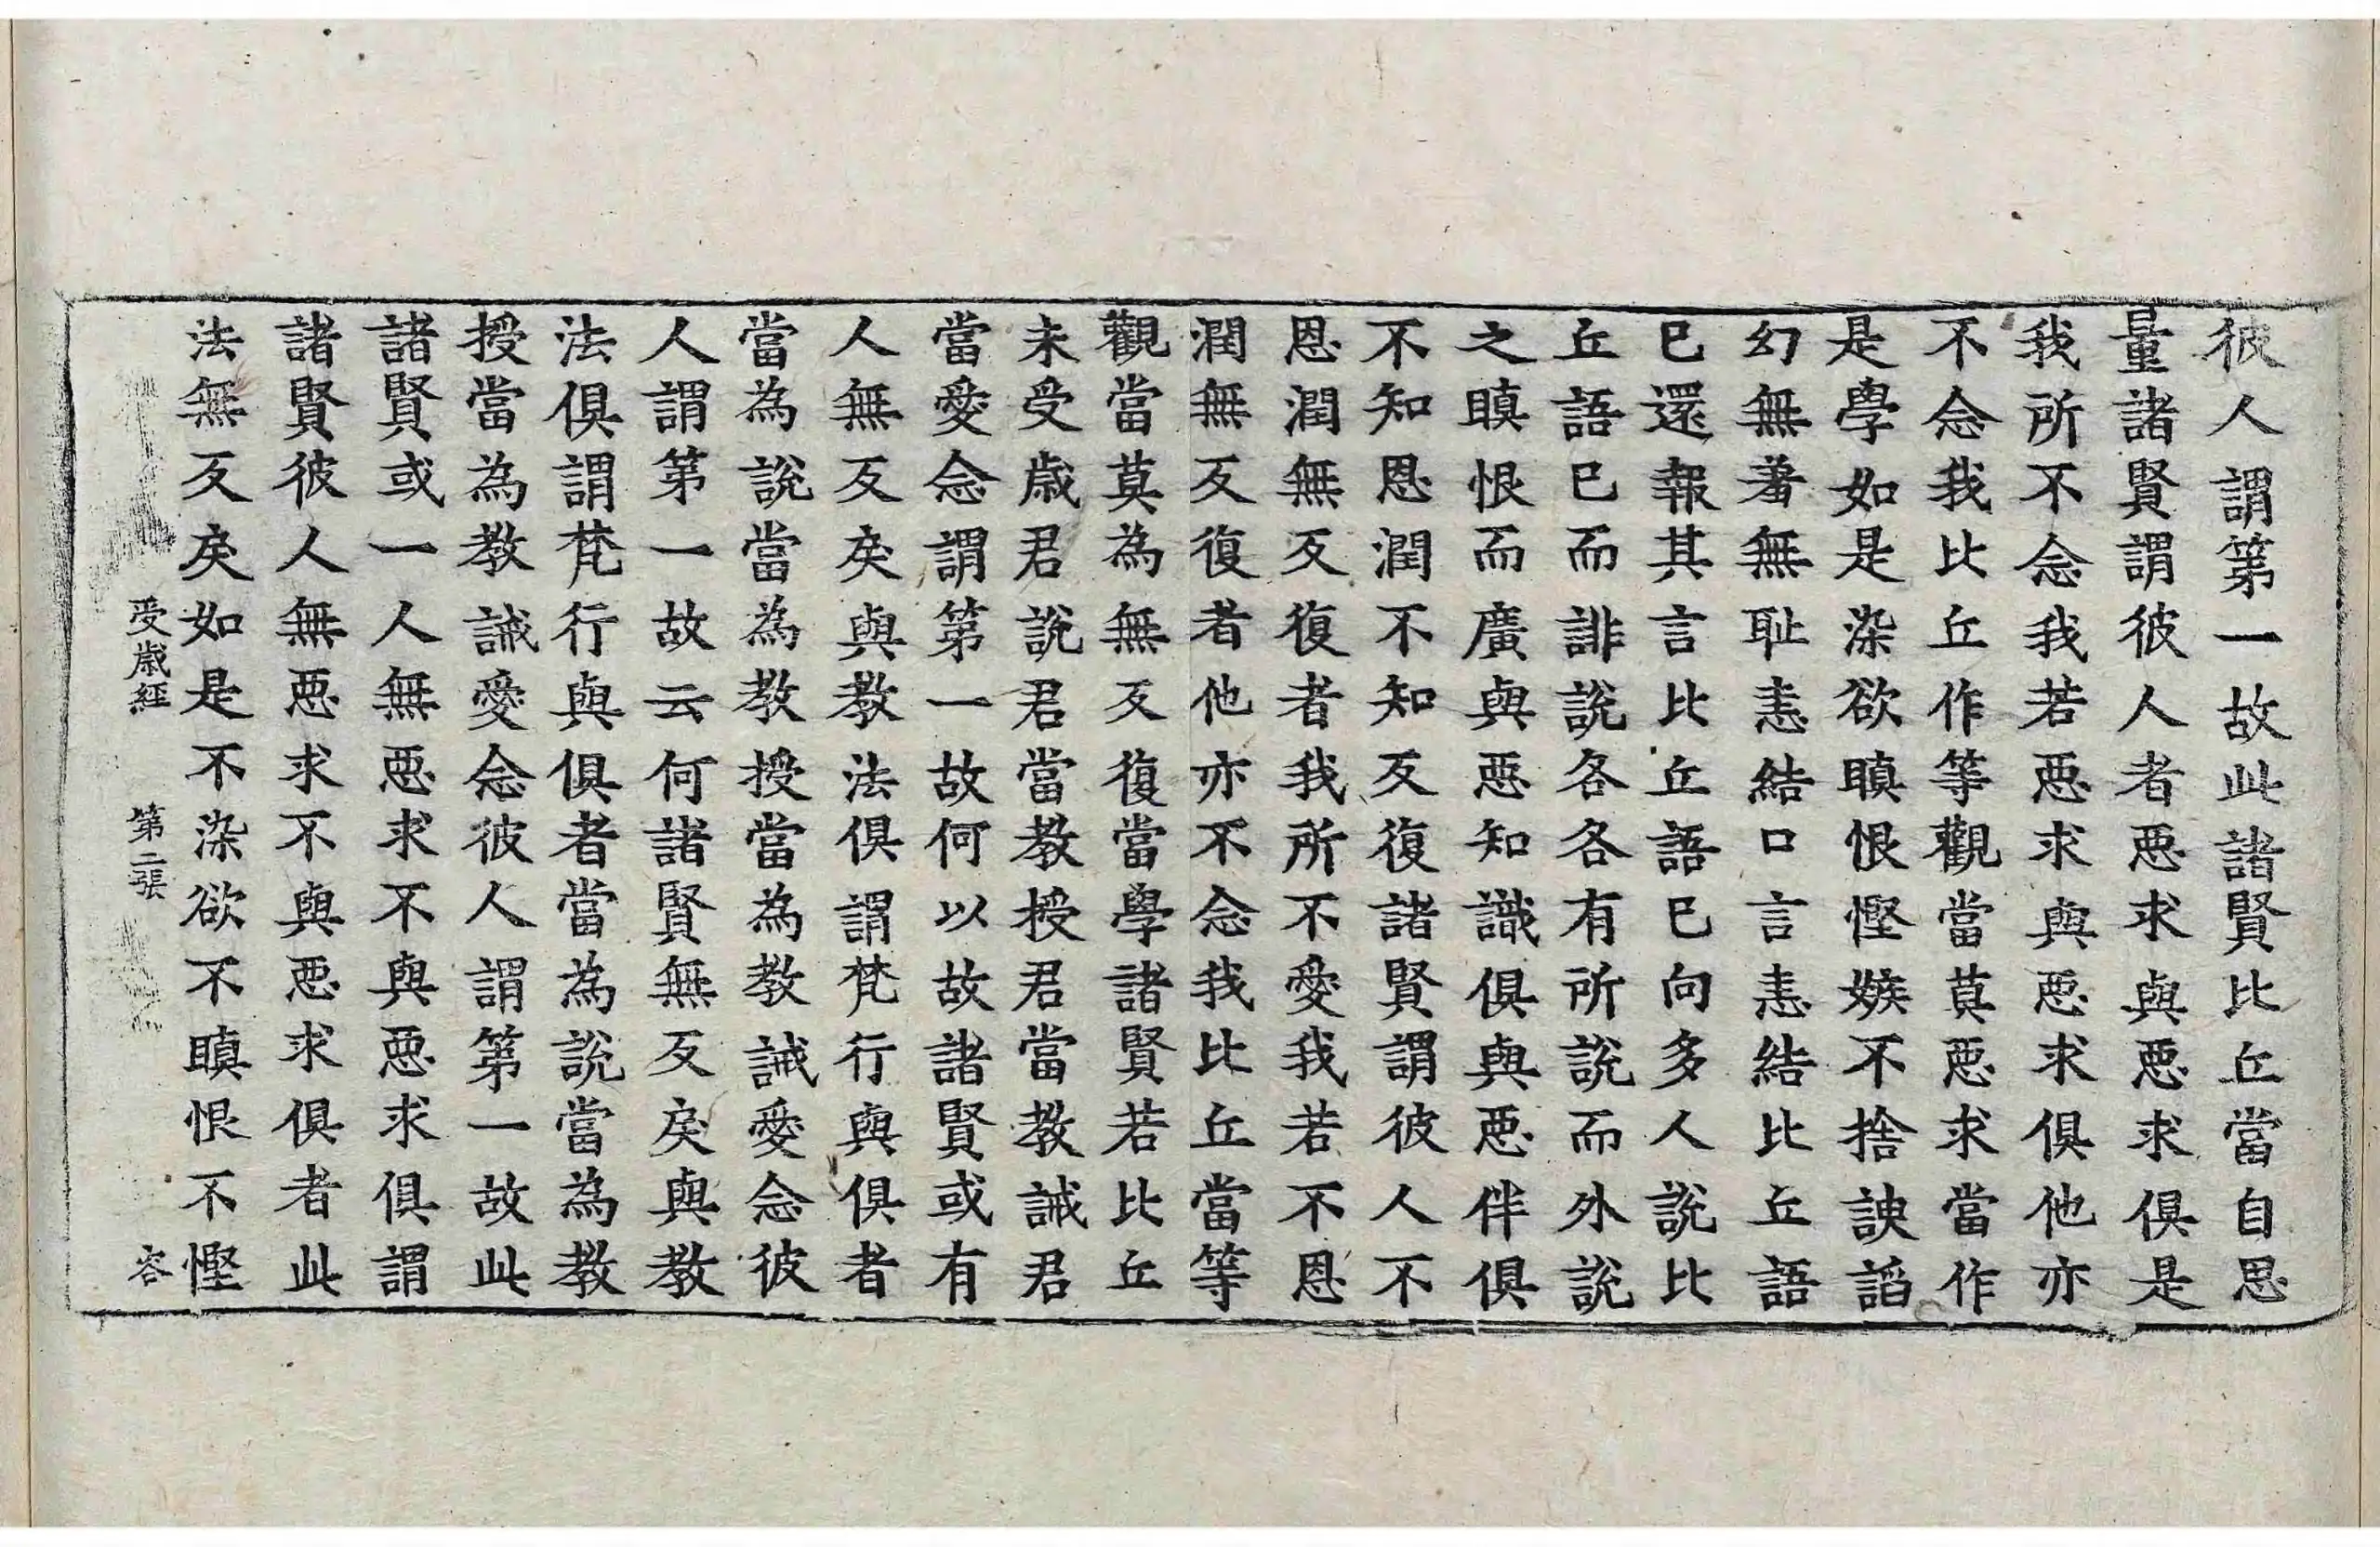 彼人謂第一故此諸賢比丘當自思
量諸賢謂彼人者惡求與惡求俱是
我所不念我若惡求與惡求俱他亦
不念我比丘作等觀當莫惡求當作
是學如是染欲瞋恨慳嫉不捨諛諂
幻無羞無恥恚結口言恚結比丘語
已還報其言比丘語已向多人說比
丘語已而誹說各各有所說而外說
之瞋恨而廣與惡知識俱與惡伴俱
不知恩潤不知反復諸賢謂彼人不
恩潤無反復者我所不愛我若不恩
潤無反復者他亦不念我比丘當等
觀當莫為無反復當學諸賢若比丘
未受歲君說君當教授君當教誡君
當愛念謂第一故何以故諸賢或有
人無反戾與教法俱謂梵行與俱者
當為說當為教授當為教誡愛念彼
人謂第一故云何諸賢無反戾與教
法俱謂梵行與俱者當為說當為教
授當為教誡愛念彼人謂第一故此
諸賢或一人無惡求不與惡求俱謂
諸賢彼人無惡求不與惡求俱者此
法無反戾如是不染欲不瞋恨不慳
受歲經 第二張 容